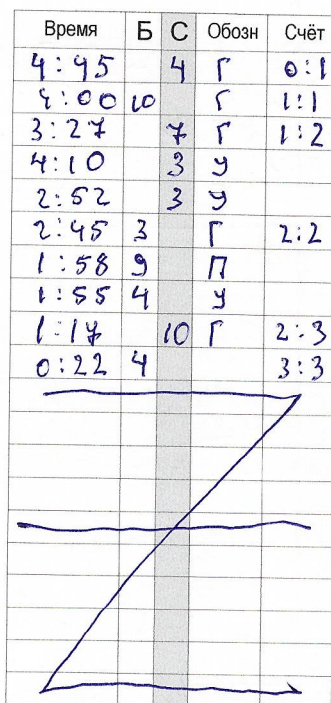 Время Б С Обозн Счёт
4:45 4 Г 0:1
4:00 10 Г 1:1
3:27 7 Г 1:2
4:10 3 У
2:52 3 У
2:45 3 Г 2:2
1:58 9 П
1:55 4 У
1:17 10 Г 2:3
0:22 4 3:3